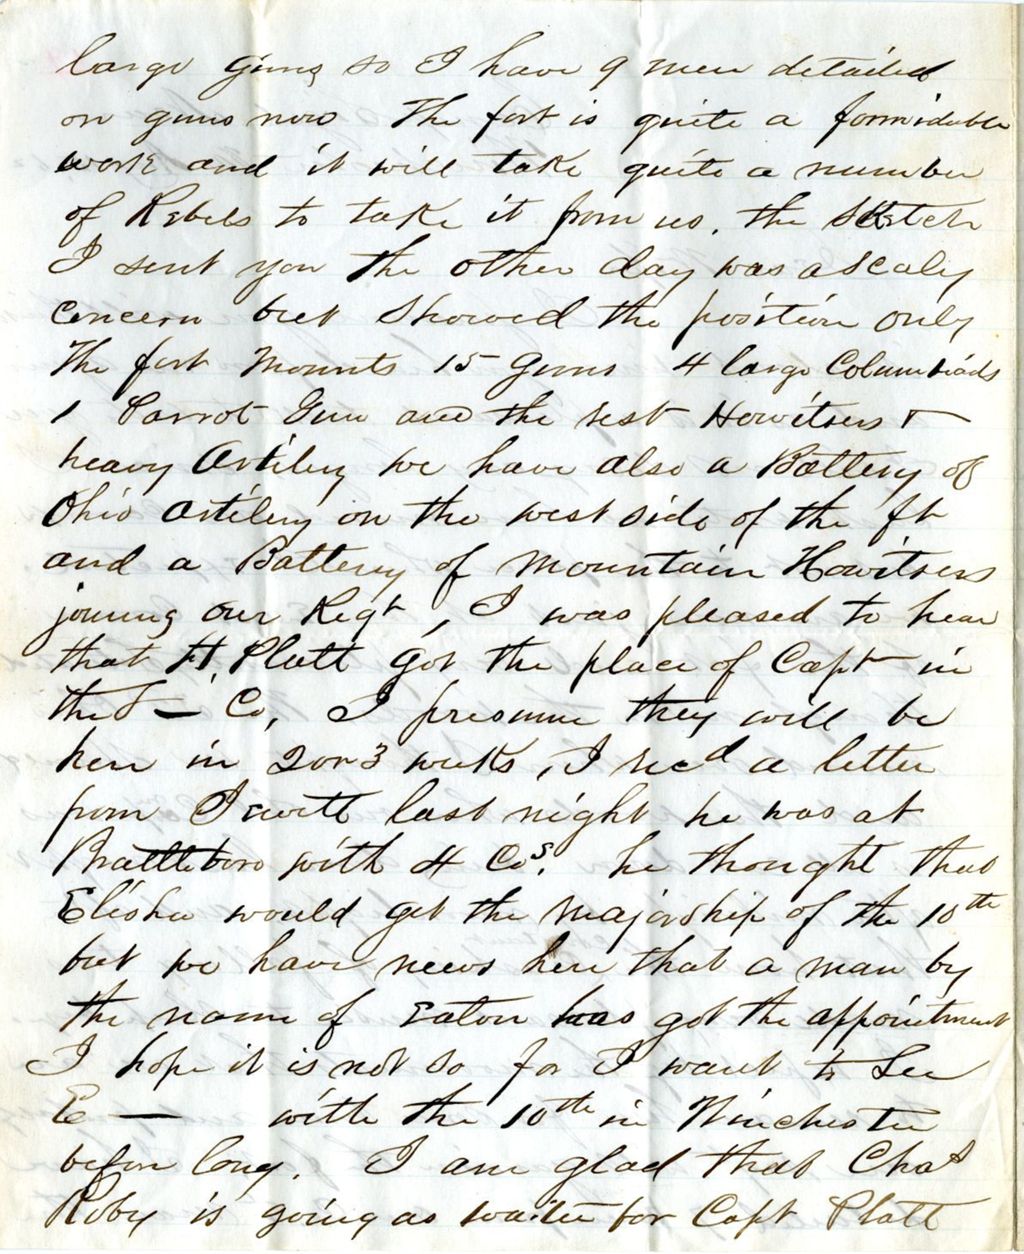 large guns so I have 9 men detailed
on guns now The fort is quite a formidable
work and it will take quite a number
of Rebels to take it from us. the sketch
I sent you the other day was a scaly
concern but showed the position only
The fort mounts 15 guns 4 large Columbiads
1 Parrot Gun and the rest Howitsers &
heavy Artilery we have also a Battery of
Ohio artilery on the west side of the ft
and a Battery of Mountain Howitsers
joining our Regt, I was pleased to hear
that H. Platt got the place of Capt in
the — Co, I presume they will be
here in 2 or 3 weeks, I recd a letter
from Jewett last night he was at
Brattleboro with 4 Cos. he thought that
Elisha would get the Majorship of the 10th
but we have news here that a man by
the name of Eaton has got the appointment
I hope it is not so for I want to see
E — with the 10th in Winchester
before long. I am glad that Chas
Roby is going as waiter for Capt Platt